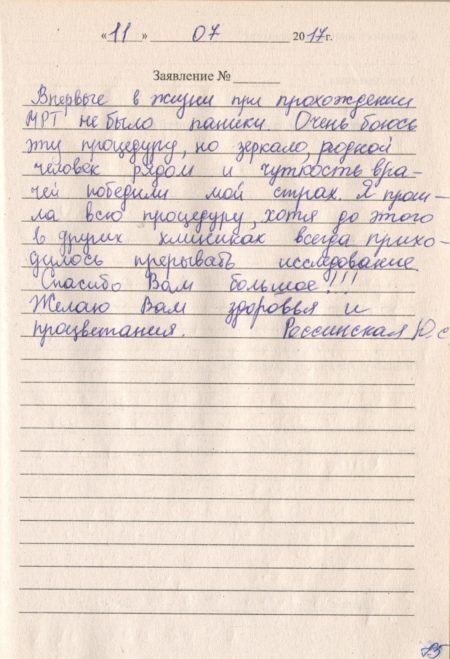 «11» 07 2017г.
Заявление №
Впервые в жизни при прохождении
МРТ не было паники. Очень боюсь
эту процедуру, но зеркало, родной
человек рядом и чуткость вра-
чей победили мой страх. Я прош-
ла всю процедуру, хотя до этого
в других клиниках всегда прихо-
дилось прерывать исследование.
Спасибо Вам большое!!!
Желаю Вам здоровья и
процветания. Россинская Ю.С